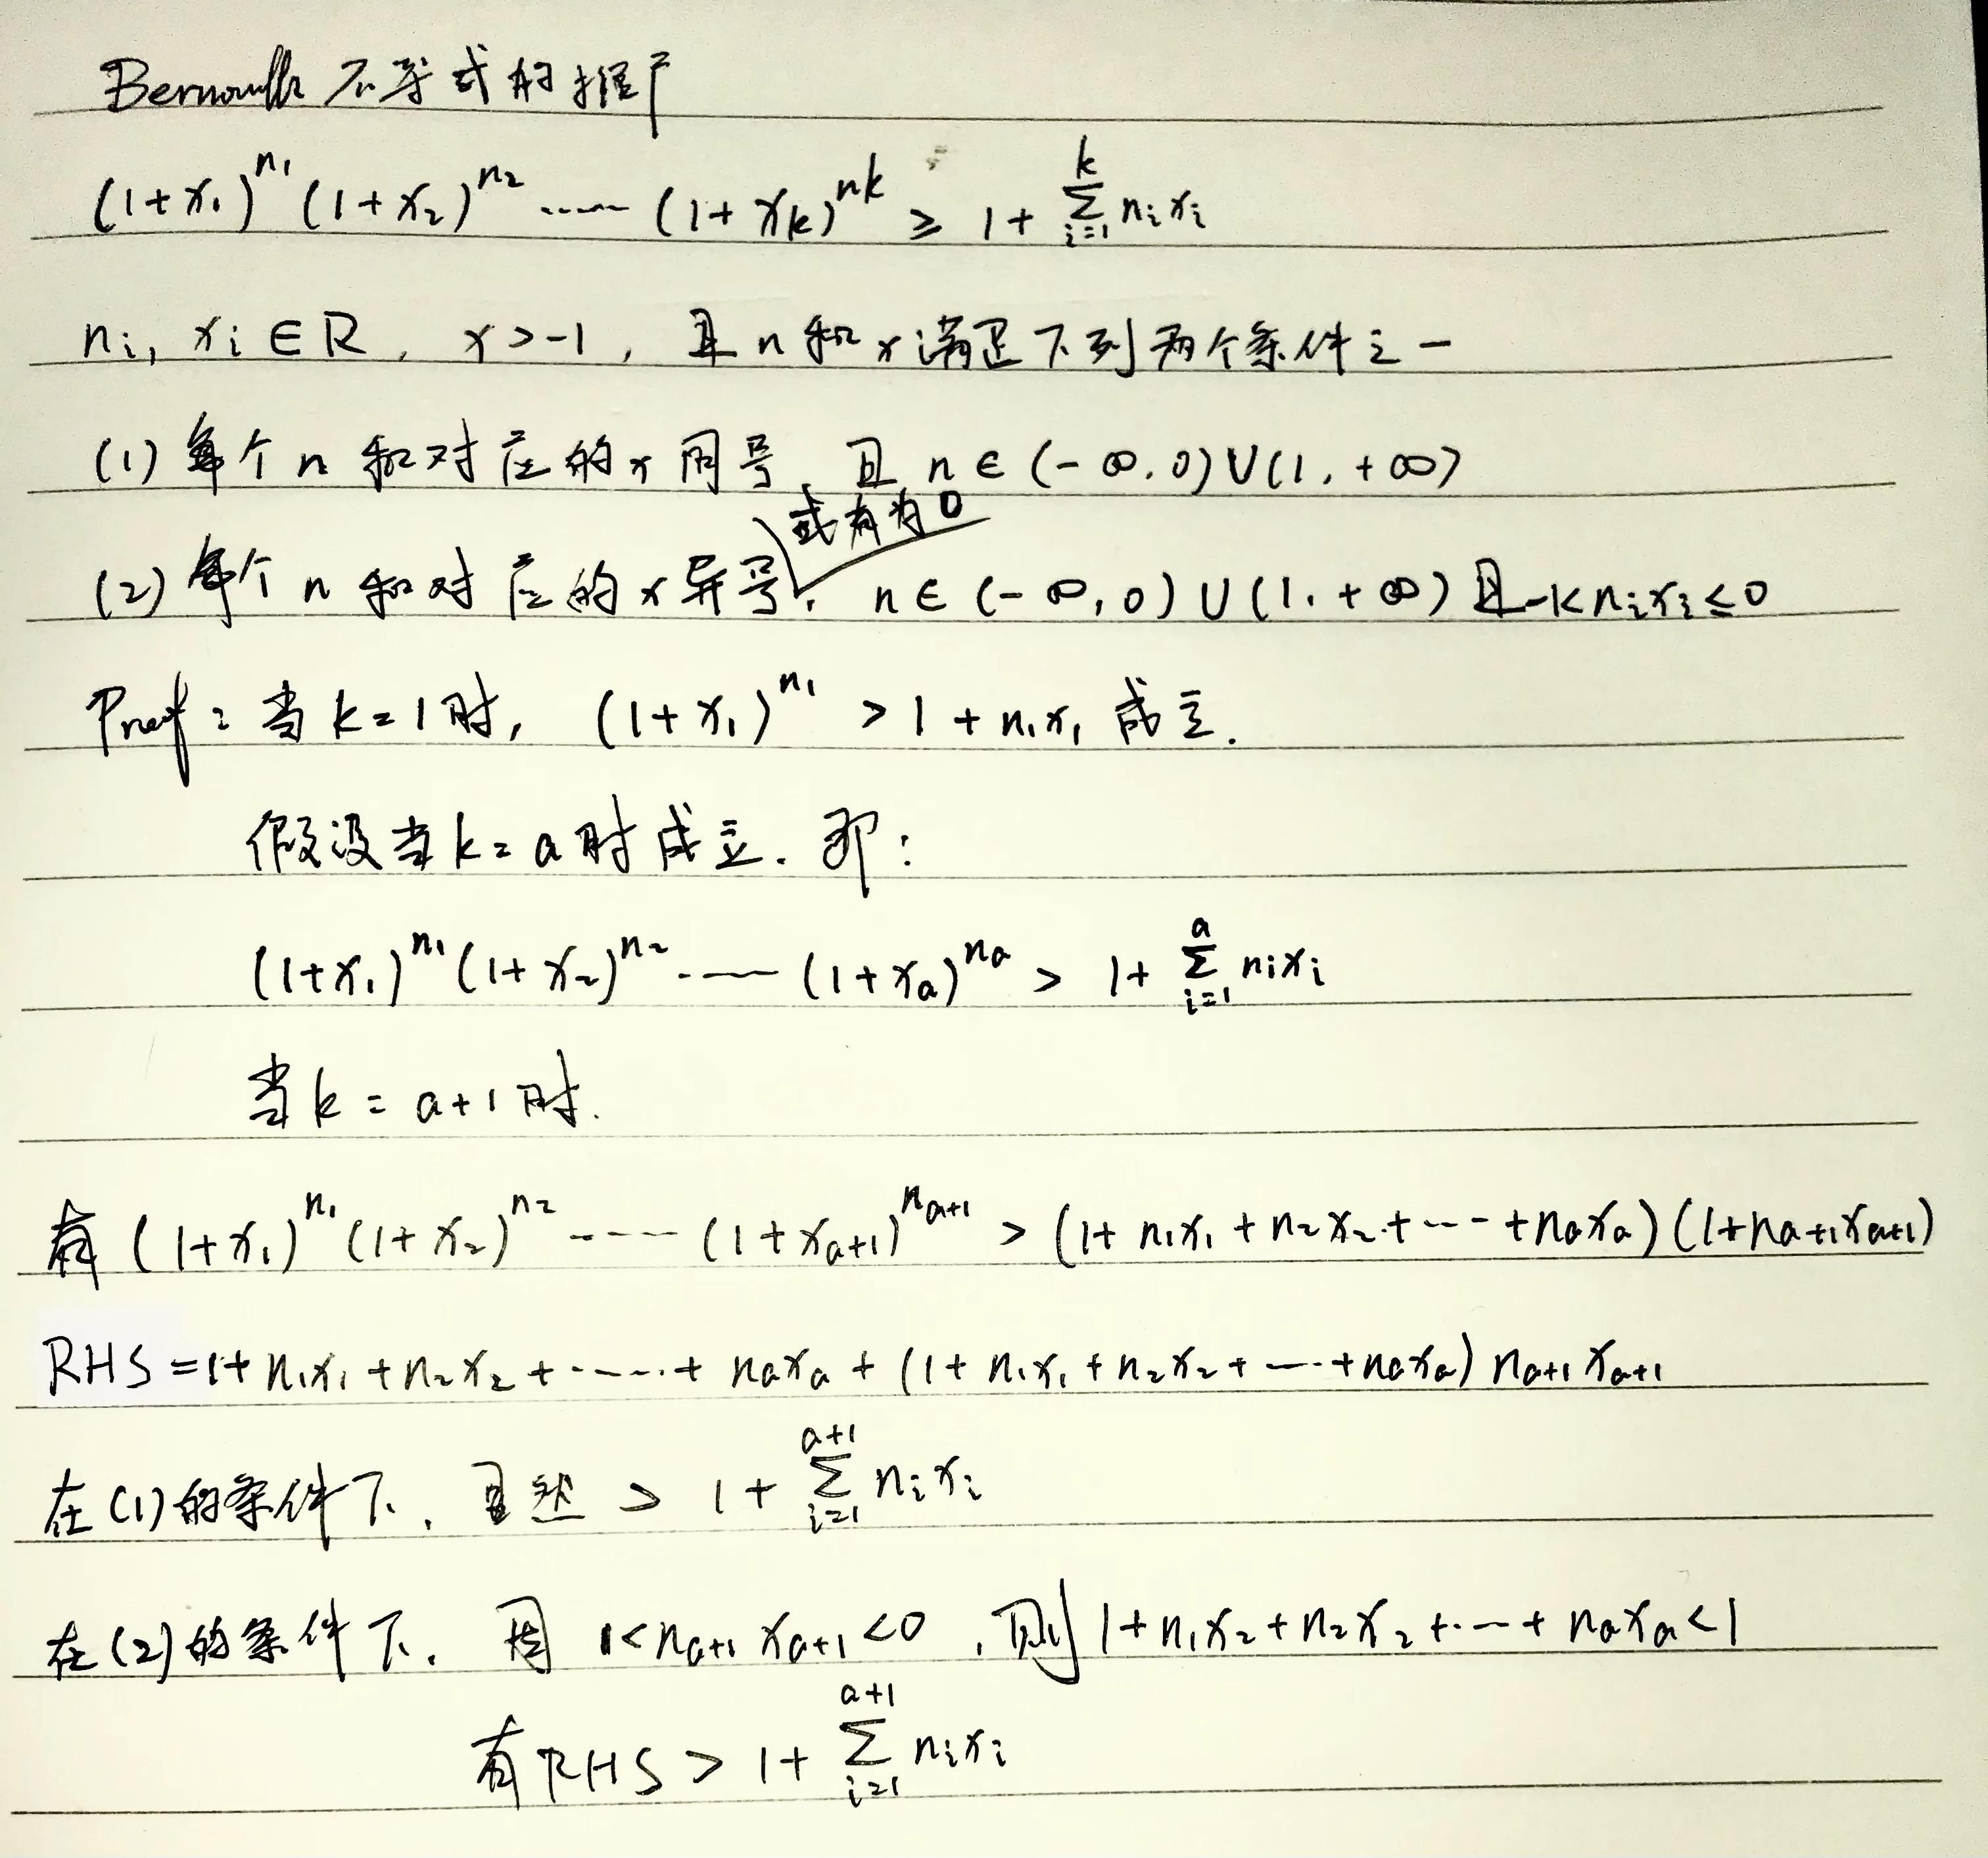 Bernoulli 不等式的推广
(1+x₁)^{n₁} (1+x₂)^{n₂} …… (1+x_k)^{nk} ≥ 1+ \sum_{i=1}^{k} n_i x_i
n_i, x_i ∈ R, x>-1, 且 n 和 x 满足下列两个条件之一
(1) 每个 n 和对应的 x 同号, 且 n ∈ (-∞,0)∪(1,+∞)
或有为0
(2) 每个 n 和对应的 x 异号, n∈ (-∞,0)∪(1,+∞) 且 -1<n_i x_i≤0
Proof: 当 k=1 时, (1+x₁)^{n₁} > 1+n₁x₁ 成立.
假设当 k=a 时成立. 即:
(1+x₁)^{n₁} (1+x₂)^{n₂} …… (1+x_a)^{n_a} > 1+ \sum_{i=1}^{a} n_i x_i
当 k=a+1 时.
有 (1+x₁)^{n₁} (1+x₂)^{n₂} …… (1+x_{a+1})^{n_{a+1}} > (1+n₁x₁+n₂x₂+…+n_a x_a)(1+n_{a+1}x_{a+1})
RHS =1+n₁x₁+n₂x₂+……+n_a x_a+(1+n₁x₁+n₂x₂+…+n_a x_a) n_{a+1} x_{a+1}
在(1)的条件下, 显然 > 1+ \sum_{i=1}^{a+1} n_i x_i
在(2)的条件下. 因 1<n_{a+1} x_{a+1}<0, 则 1+n₁x₂+n₂x₂+…+n_a x_a<1
有 RHS > 1+ \sum_{i=1}^{a+1} n_i x_i